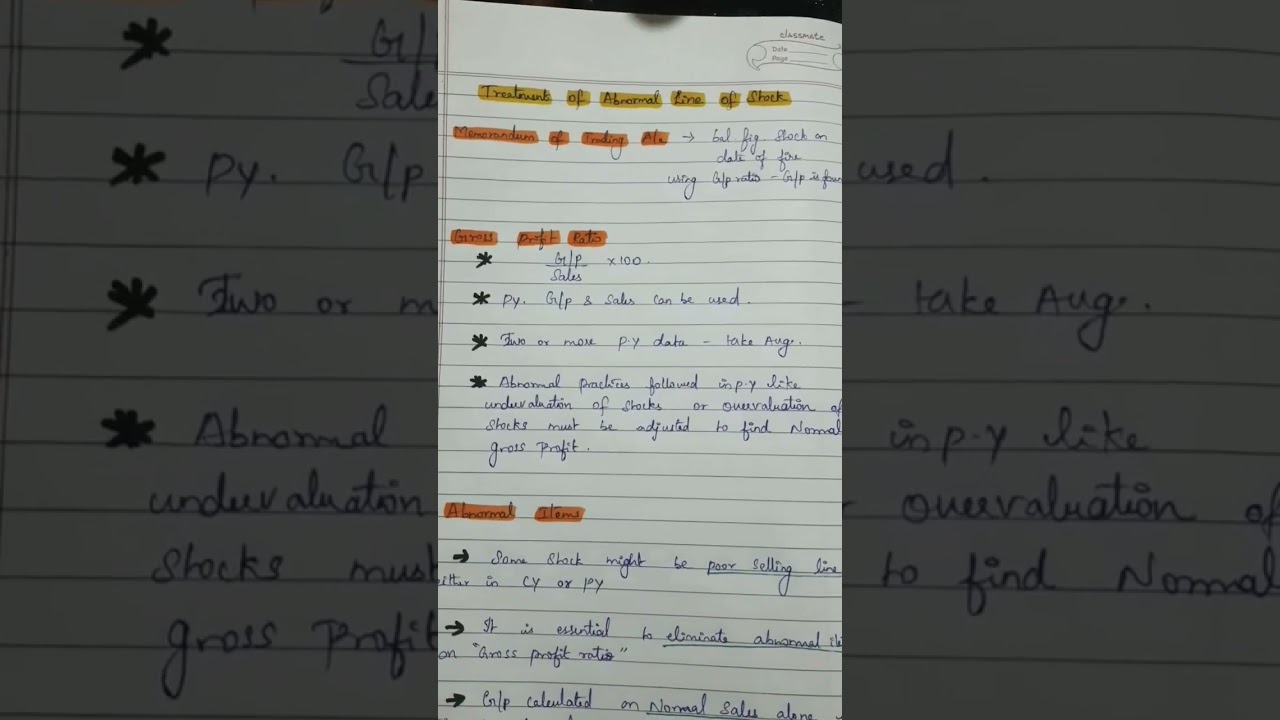 classmate
Date
Page
Treatment of Abnormal Line of Stock
Memorandum of Trading A/c → bal fig. Stock on
date of fire
using G/p ratio - G/p is foun
Gross Profit Ratio
* G/P
Sales ×100.
* Py. G/p & Sales can be used.
* Two or more p.y data - take Avg.
* Abnormal practices followed in p.y like
undervaluation of stocks or overvaluation of
stocks must be adjusted to find Normal
gross Profit.
Abnormal Items
→ Some stock might be poor selling line
either in CY or PY
→ It is essential to eliminate abnormal
on "Gross profit ratio"
→ G/p calculated on Normal Sales alone